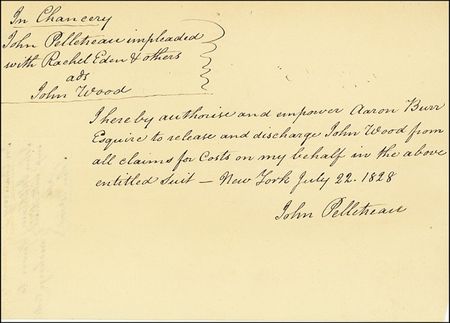 In Chancery
John Pelletreau impleaded
with Rachel Eden & others
ads
John Wood
I hereby authorise and empower Aaron Burr
Esquire to release and discharge John Wood from
all claims for Costs on my behalf in the above
entitled suit — New York July 22. 1828
John Pelletreau